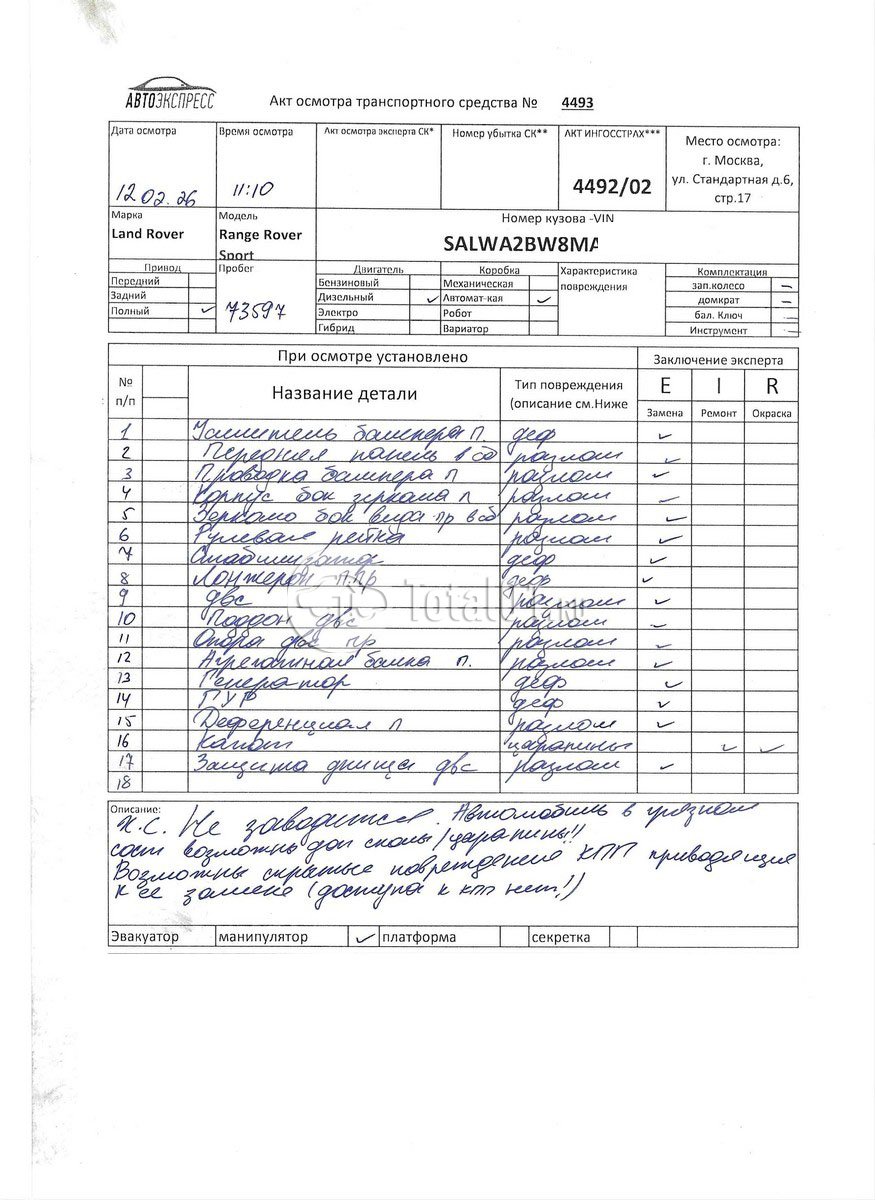 АВТОЭКСПРЕСС
Акт осмотра транспортного средства № 4493
Дата осмотра
12 02. 26
Время осмотра
11:10
Акт осмотра эксперта СК*
Номер убытка СК**
АКТ ИНГОССТРАХ***
4492/02
Место осмотра:
г. Москва,
ул. Стандартная д.6,
стр.17
Марка
Land Rover
Модель
Range Rover
Sport
Номер кузова -VIN
SALWA2BW8MA
Привод
Передний
Задний
Полный ✓
Пробег
73597
Двигатель
Бензиновый
Дизельный ✓
Электро
Гибрид
Коробка
Механическая
Автомат-кая ✓
Робот
Вариатор
Характеристика
повреждения
Комплектация
зап.колесо –
домкрат –
бал. Ключ –
Инструмент –
При осмотре установлено
Заключение эксперта
№
п/п
Название детали
Тип повреждения
(описание см.Ниже
E I R
Замена Ремонт Окраска
1 Усилитель бампера П. деф ✓
2 Передняя панель в сб разлом ✓
3 Проводка бампера П разлом ✓
4 Корпус бок зеркала П разлом ✓
5 Зеркало бок вида пр в сб разлом ✓
6 Рулевая рейка разлом ✓
7 Стабилизатор деф ✓
8 Лонжерон п.пр деф ✓
9 двс разлом ✓
10 Поддон двс разлом ✓
11 Опора двс пр разлом ✓
12 Агрегатная балка п. разлом ✓
13 Генератор деф ✓
14 ГУР деф ✓
15 Деференциал П разлом ✓
16 Капот царапины ✓ ✓
17 Защита днища двс разлом ✓
18
Описание:
Х.С. Не заводится. Автомобиль в грязном
сост возможны доп сколы/царапины!!
Возможны скрытые повреждение КПП приводящие
к ее замене (доступа к кпп нет!)
Эвакуатор манипулятор ✓ платформа секретка